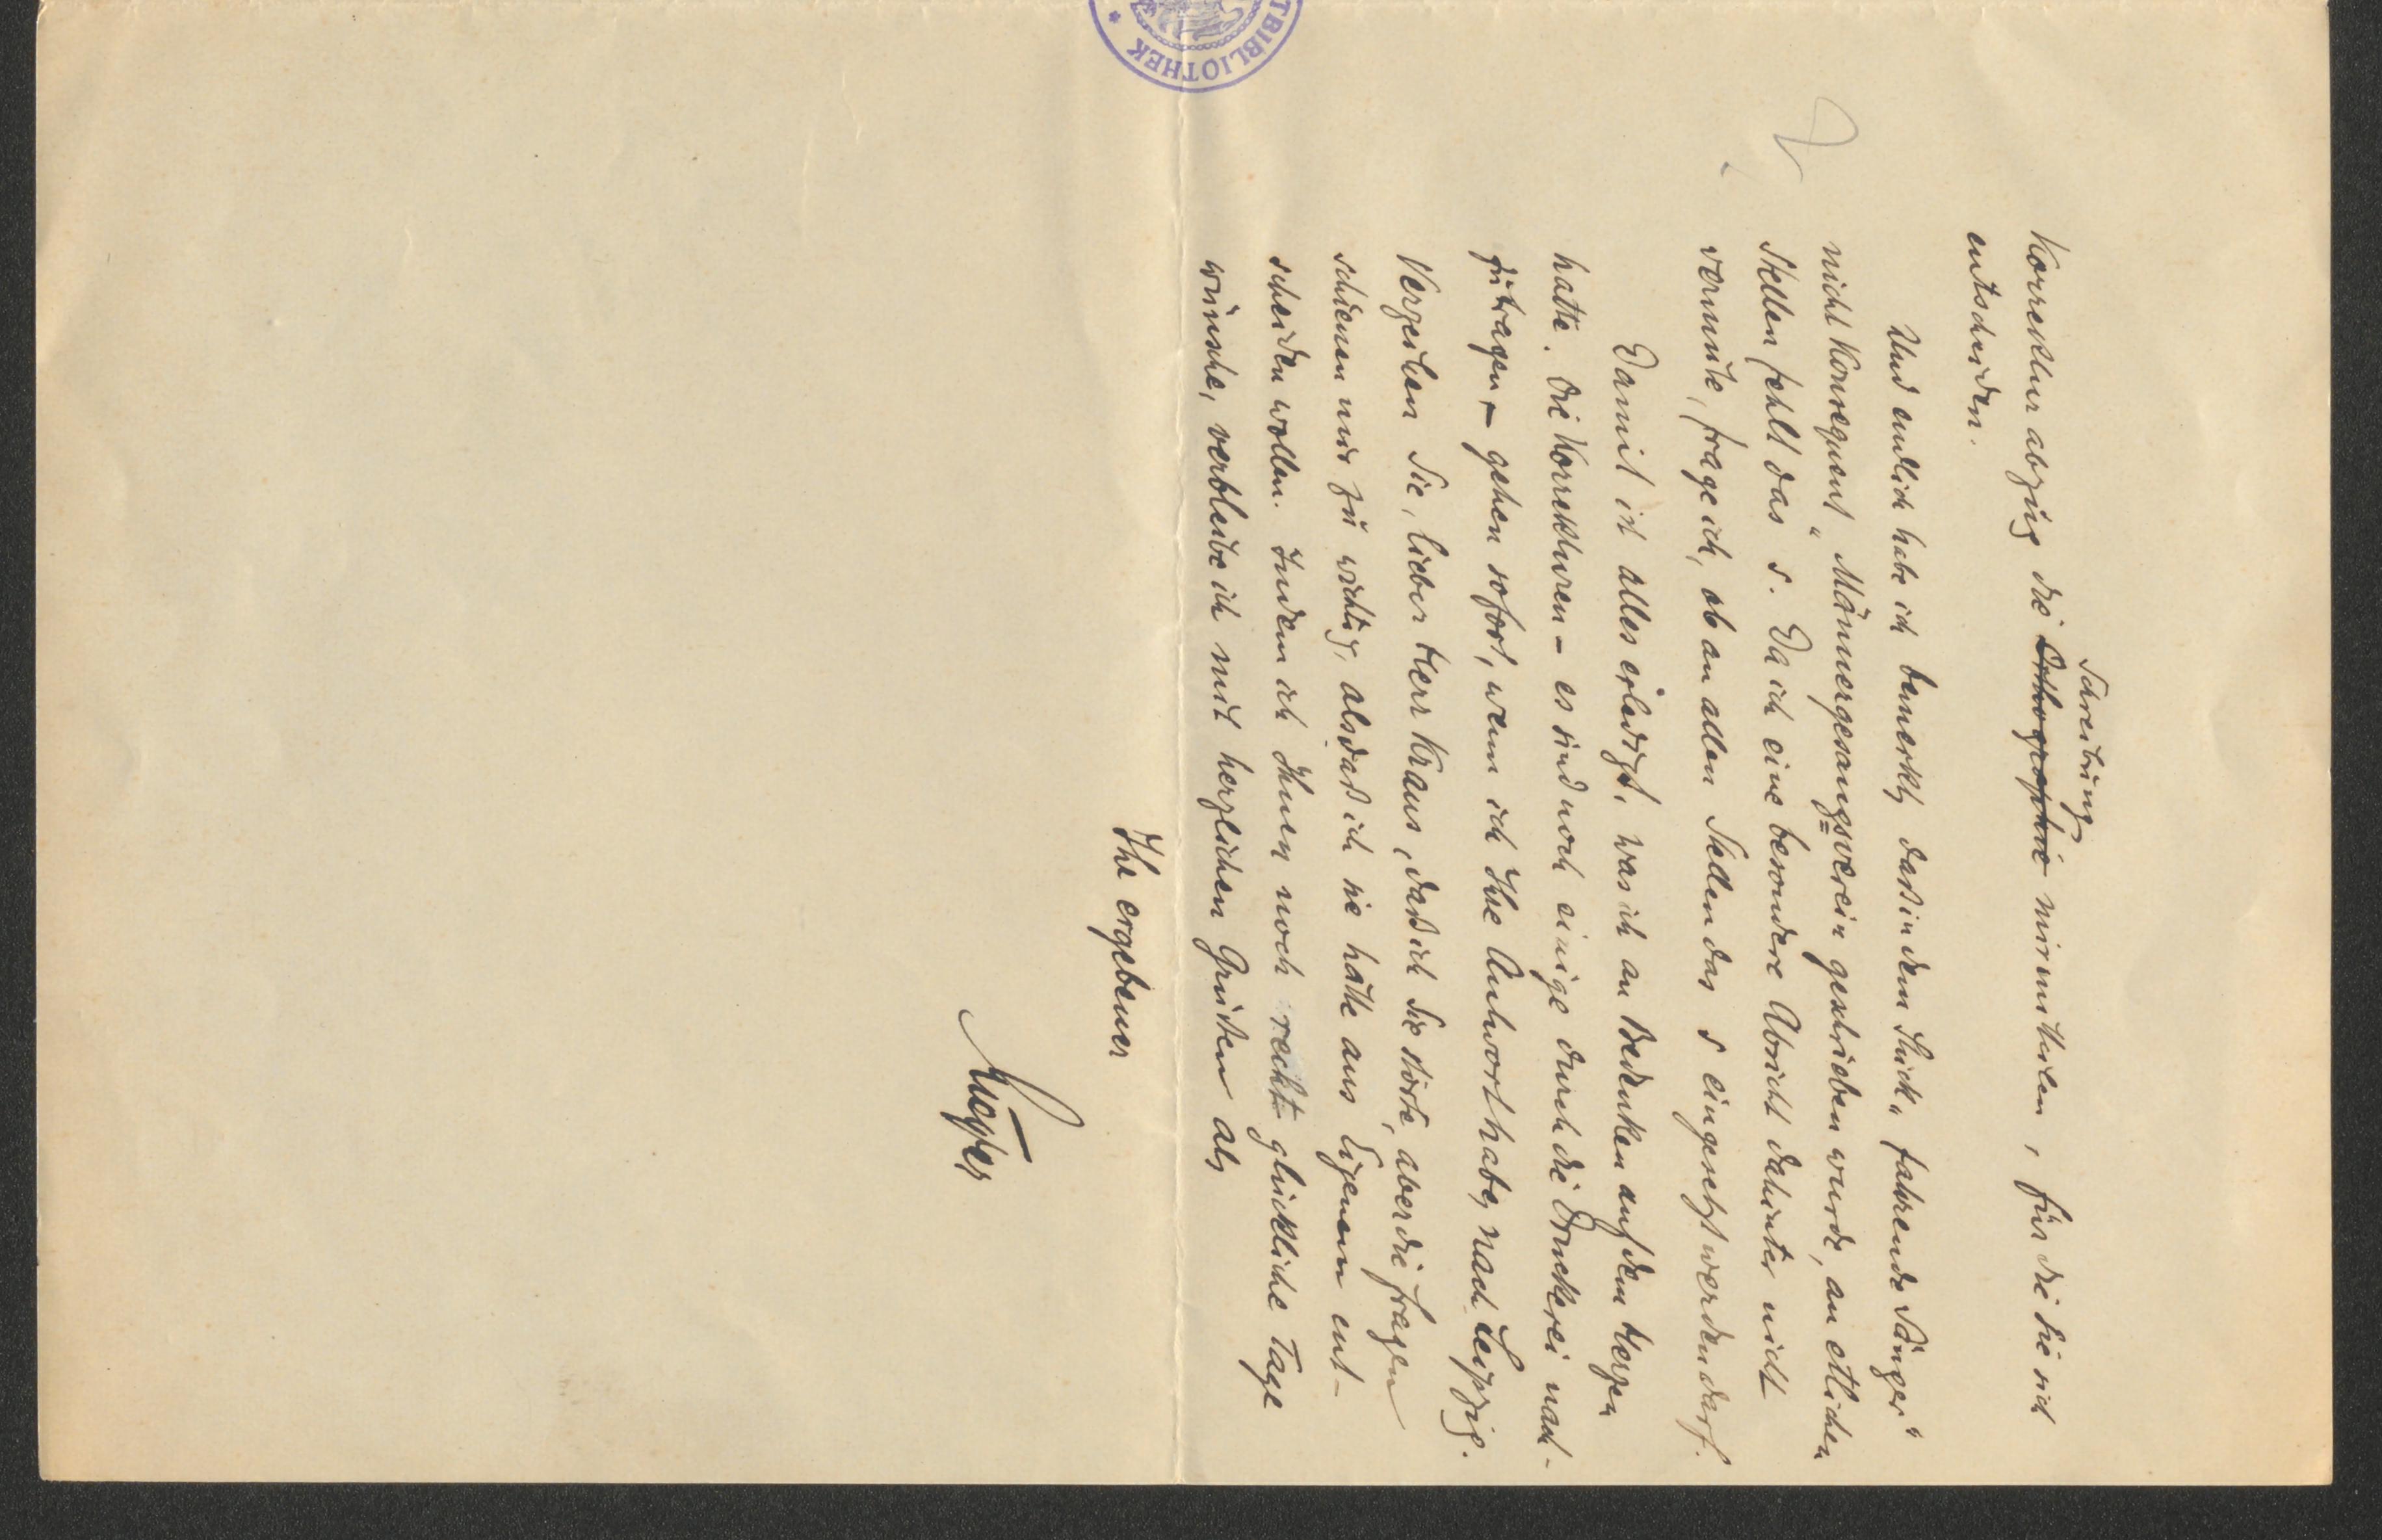 Korrektur abzug die Schreibung mirmitteilen, für die Sie sich
entscheiden.
Und endlich habe ich bemerkt, daß in dem Stück „fahrende Sänger"
nicht konsequent „Männergesangsverein geschrieben wurde, an etlichen
Stellen fehlt das s. Da ich eine besondere Absicht dahinter nicht
vermute, frage ich, ob an allen Stellen das s eingesetzt werden darf.
Damit ist alles erledigt, was ich an Bedenken auf dem Herzen
hatte. Die Korrekturen – es sind noch einige durch die Druckerei nach-
zutragen – gehen sofort, wenn ich Ihre Antwort habe, nach Leipzig.
Verzeihen Sie, lieber Herr Kraus, daß ich Sie störte, aber die Fragen
schienen mir zu wichtig, als daß ich sie hätte aus Eigenem ent-
scheiden wollen. Indem ich Ihnen noch recht glückliche Tage
wünsche, verbleibe ich mit herzlichen Grüßen als
Ihr ergebener
TBIBLIOTHEK